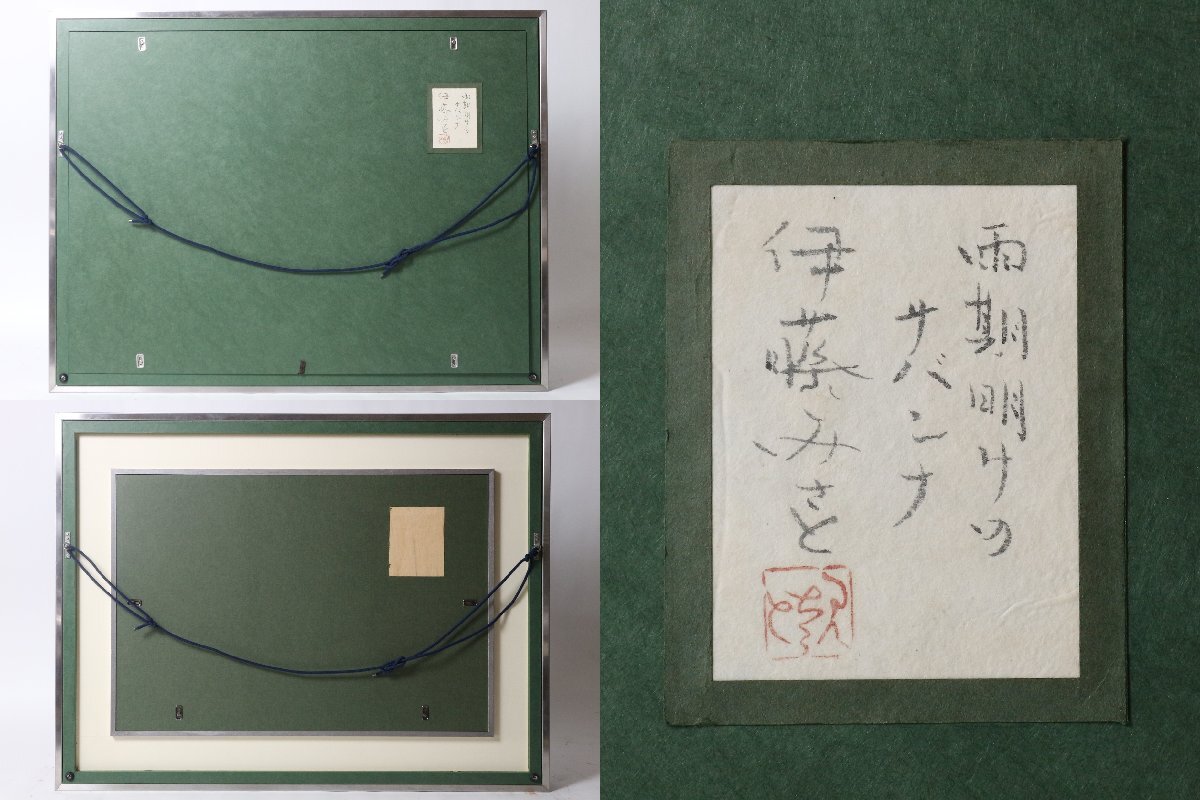 雨期明けの
サバンナ
伊藤みさと
みさと